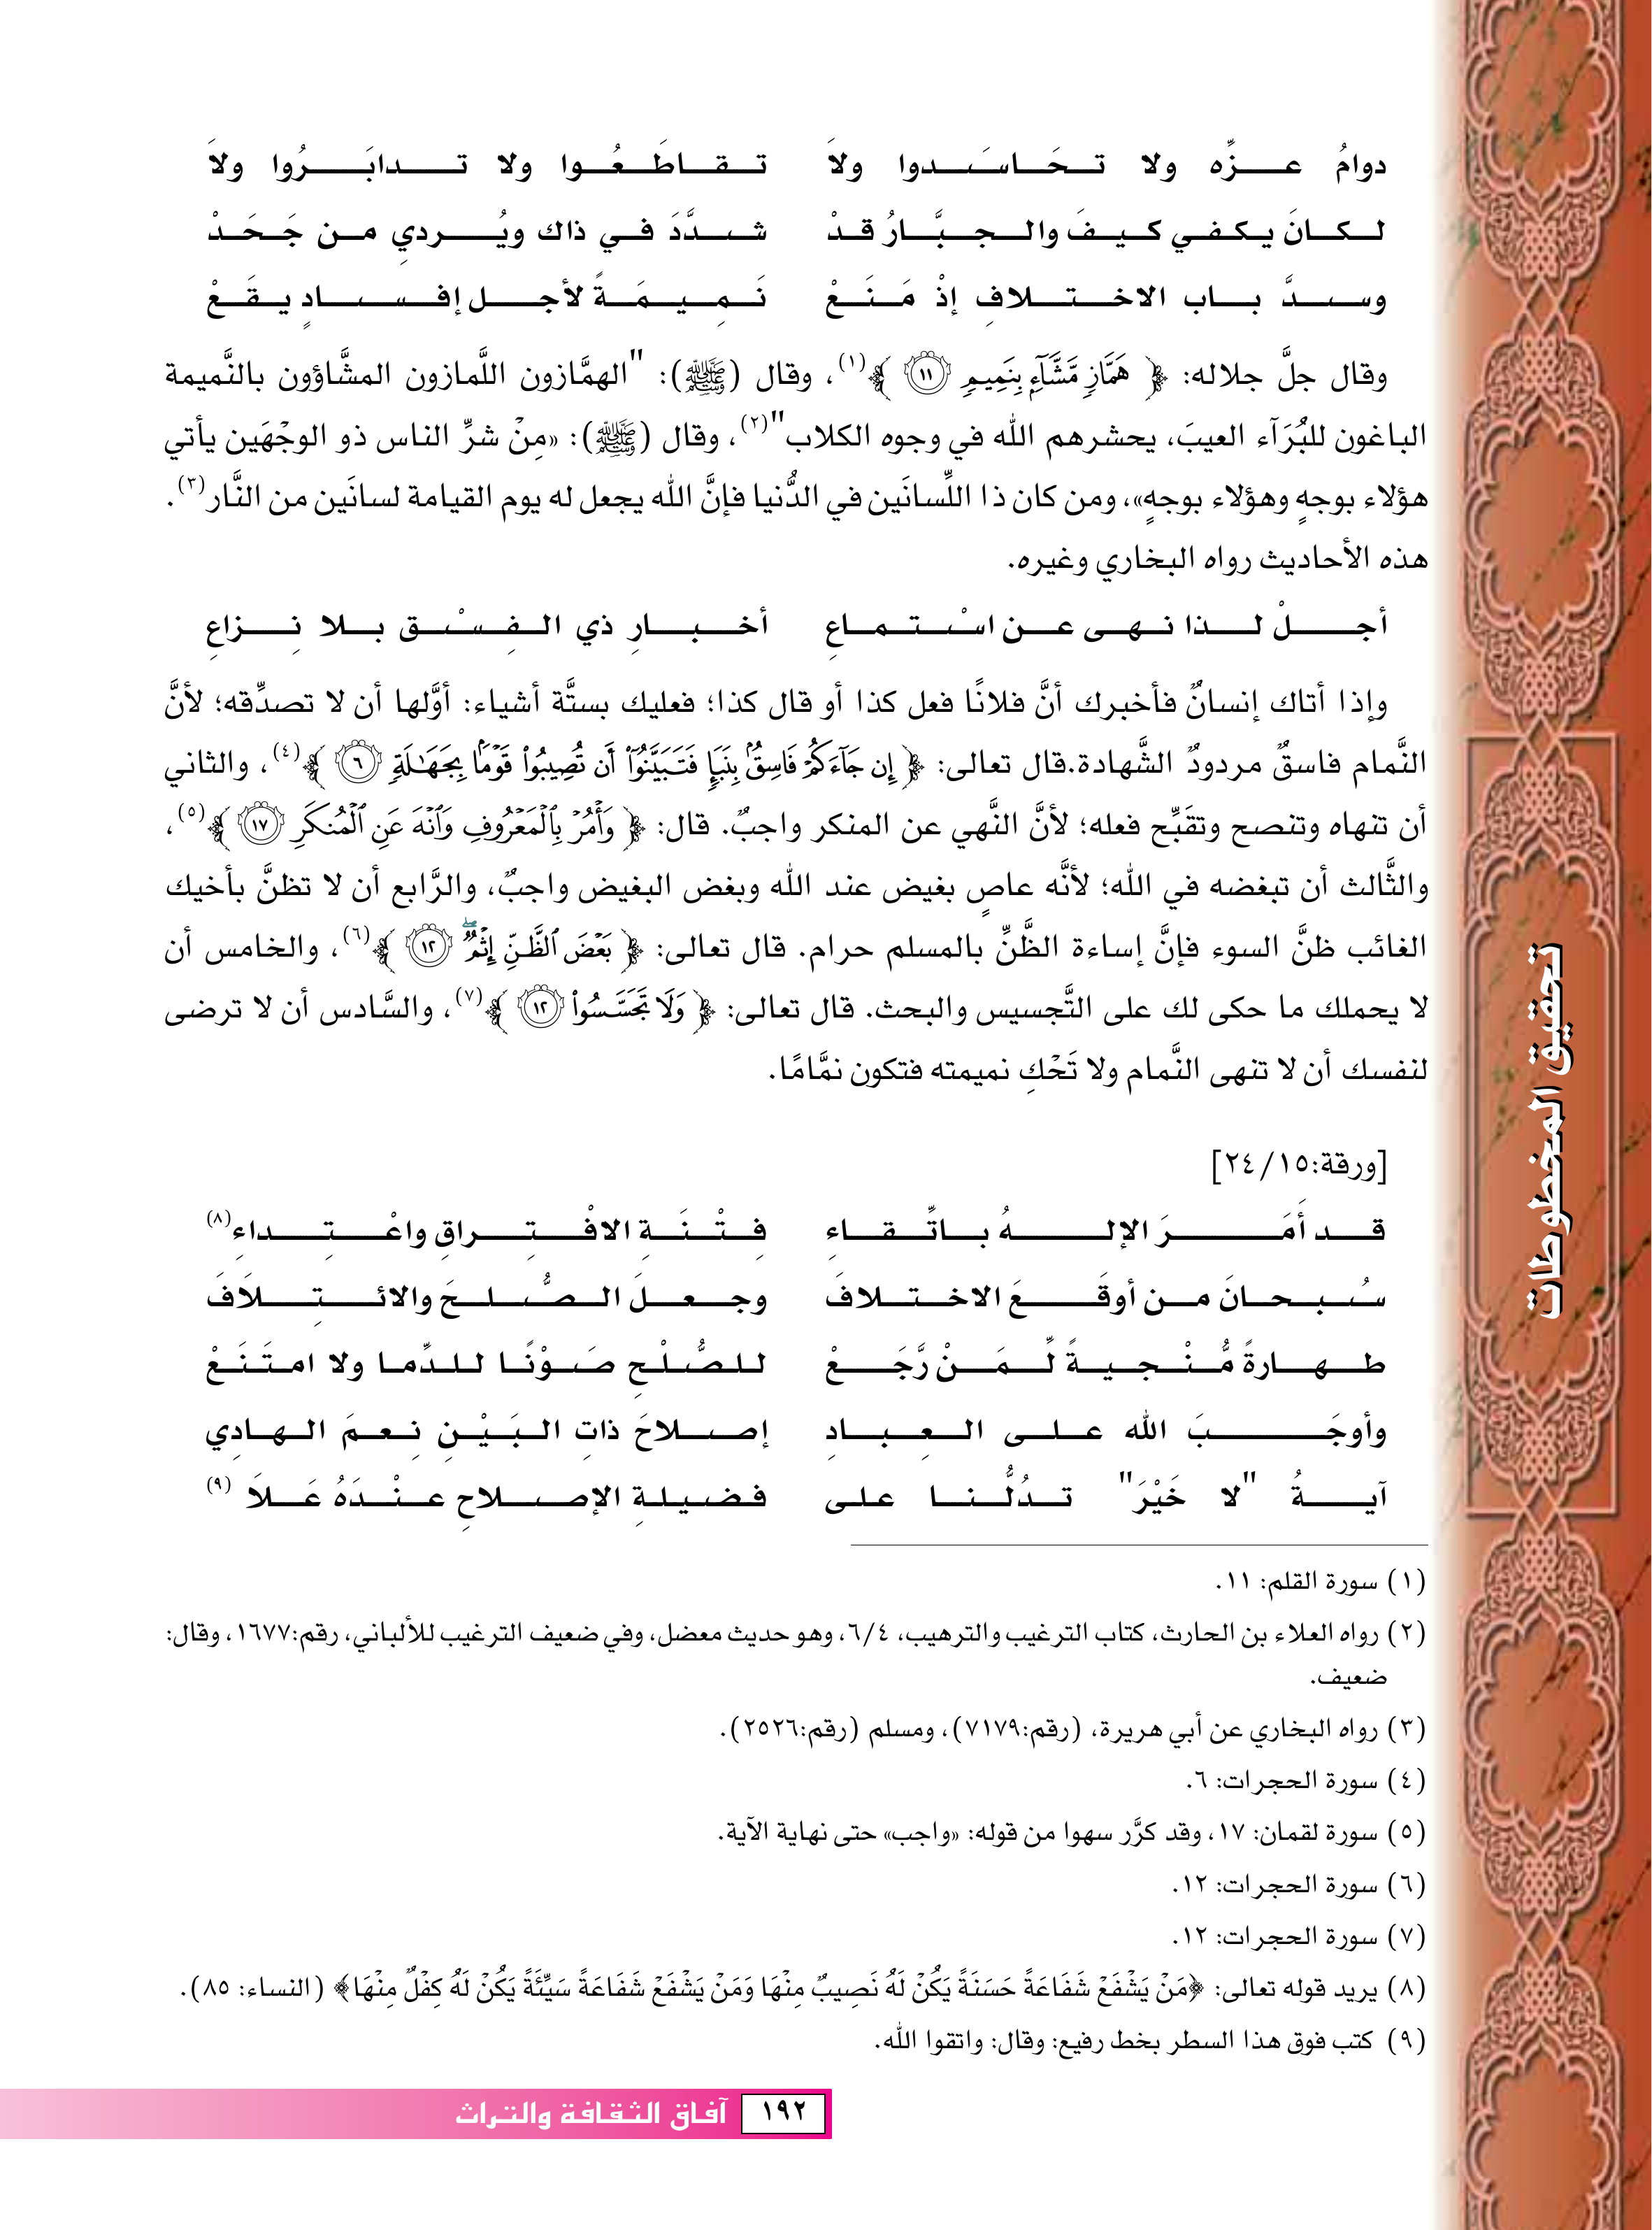 دوامُ عزِّه ولا تحَاسَدوا ولاَ تقاطَعُوا ولا تدابَرُوا ولاَ
لكانَ يكفي كيفَ والجبَّارُ قدْ شدَّدَ في ذاك ويُردي من جَحَدْ
وسدَّ باب الاختلافِ إذْ مَنَعْ نَمِيمَةً لأجل إفسادٍ يقَعْ
وقال جلَّ جلاله: ﴿ هَمَّازٖ مَّشَّآءِۭ بِنَمِيمٖ ١١ ﴾(١)، وقال (ﷺ): "الهمَّازون اللَّمازون المشَّاؤون بالنَّميمة
الباغون للبُرَآء العيبَ، يحشرهم الله في وجوه الكلاب"(٢)، وقال (ﷺ): «مِنْ شرِّ الناس ذو الوجْهَين يأتي
هؤلاء بوجهٍ وهؤلاء بوجهٍ»، ومن كان ذا اللِّسانَين في الدُّنيا فإنَّ الله يجعل له يوم القيامة لسانَين من النَّار(٣).
هذه الأحاديث رواه البخاري وغيره.
أجلْ لذا نهى عن اسْتماعِ أخبارِ ذي الفِسْق بلا نِزاعِ
وإذا أتاك إنسانٌ فأخبرك أنَّ فلانًا فعل كذا أو قال كذا؛ فعليك بستَّة أشياء: أوَّلها أن لا تصدِّقه؛ لأنَّ
النَّمام فاسقٌ مردودٌ الشَّهادة.قال تعالى: ﴿ إِن جَآءَكُمۡ فَاسِقُۢ بِنَبَإٖ فَتَبَيَّنُوٓاْ أَن تُصِيبُواْ قَوۡمَۢا بِجَهَٰلَةٖ ٦ ﴾(٤)، والثاني
أن تنهاه وتنصح وتقَبِّح فعله؛ لأنَّ النَّهي عن المنكر واجبٌ. قال: ﴿ وَأۡمُرۡ بِٱلۡمَعۡرُوفِ وَٱنۡهَ عَنِ ٱلۡمُنكَرِ ١٧ ﴾(٥)،
والثَّالث أن تبغضه في الله؛ لأنَّه عاصٍ بغيض عند الله وبغض البغيض واجبٌ، والرَّابع أن لا تظنَّ بأخيك
الغائب ظنَّ السوء فإنَّ إساءة الظَّنِّ بالمسلم حرام. قال تعالى: ﴿ بَعۡضَ ٱلظَّنِّ إِثۡمٞۖ ١٢ ﴾(٦)، والخامس أن
لا يحملك ما حكى لك على التَّجسيس والبحث. قال تعالى: ﴿ وَلَا تَجَسَّسُواْ ١٢ ﴾(٧)، والسَّادس أن لا ترضى
لنفسك أن لا تنهى النَّمام ولا تَحْكِ نميمته فتكون نمَّامًا.
[ورقة:٢٤/١٥]
قد أمَرَ الإلهُ باتِّقاءِ فِتْنَةِ الافْتِراقِ واعْتِداءِ(٨)
سُبحانَ من أوقَعَ الاختلافَ وجعلَ الصُّلحَ والائتِلاَفَ
طهارةً مُّنْجيةً لِّمَنْ رَّجَعْ للصُّلْحِ صَوْنًا للدِّما ولا امتَنَعْ
وأوجَبَ الله على العِبادِ إصلاحَ ذاتِ البَيْنِ نِعمَ الهادِي
آيةُ "لا خَيْرَ" تدُلُّنا على فضيلةِ الإصلاحِ عنْدَهُ عَلاَ (٩)
(١) سورة القلم: ١١.
(٢) رواه العلاء بن الحارث، كتاب الترغيب والترهيب، ٦/٤، وهو حديث معضل، وفي ضعيف الترغيب للألباني، رقم:١٦٧٧، وقال:
ضعيف.
(٣) رواه البخاري عن أبي هريرة، (رقم:٧١٧٩)، ومسلم (رقم:٢٥٢٦).
(٤) سورة الحجرات: ٦.
(٥) سورة لقمان: ١٧، وقد كرَّر سهوا من قوله: «واجب» حتى نهاية الآية.
(٦) سورة الحجرات: ١٢.
(٧) سورة الحجرات: ١٢.
(٨) يريد قوله تعالى: ﴿مَنْ يَشْفَعْ شَفَاعَةً حَسَنَةً يَكُنْ لَهُ نَصِيبٌ مِنْهَا وَمَنْ يَشْفَعْ شَفَاعَةً سَيِّئَةً يَكُنْ لَهُ كِفْلٌ مِنْهَا﴾ (النساء: ٨٥).
(٩) كتب فوق هذا السطر بخط رفيع: وقال: واتقوا الله.
١٩٢ آفاق الثقافة والتراث
تحقيق المخطوطات